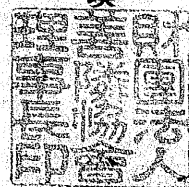 財團法人
善隣協會
理事長印